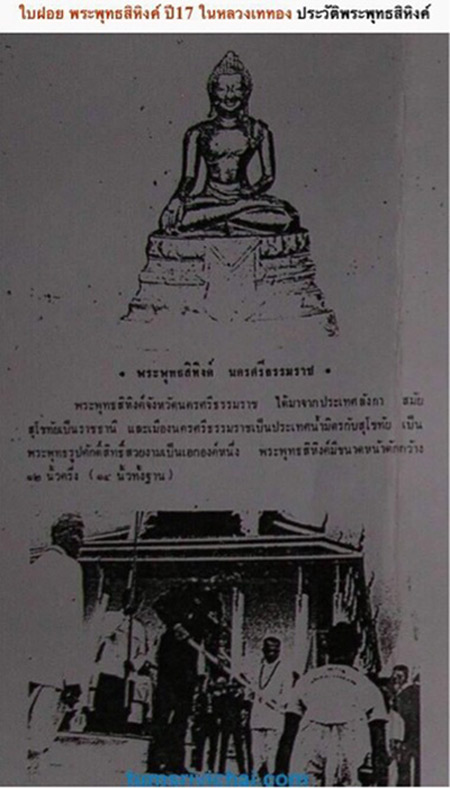 ใบฝอย พระพุทธสิหิงค์ ปี17 ในหลวงเททอง ประวัติพระพุทธสิหิงค์
• พระพุทธสิหิงค์ นครศรีธรรมราช •
พระพุทธสิหิงค์จังหวัดนครศรีธรรมราช ได้มาจากประเทศลังกา สมัย
สุโขทัยเป็นราชธานี และเมืองนครศรีธรรมราชเป็นประเทศน้ำมิตรกับสุโขทัย เป็น
พระพุทธรูปศักดิ์สิทธิ์สวยงามเป็นเอกองค์หนึ่ง พระพุทธสิหิงค์มีขนาดหน้าตักกว้าง
๑๒ นิ้วครึ่ง (๑๔ นิ้วทั้งฐาน)